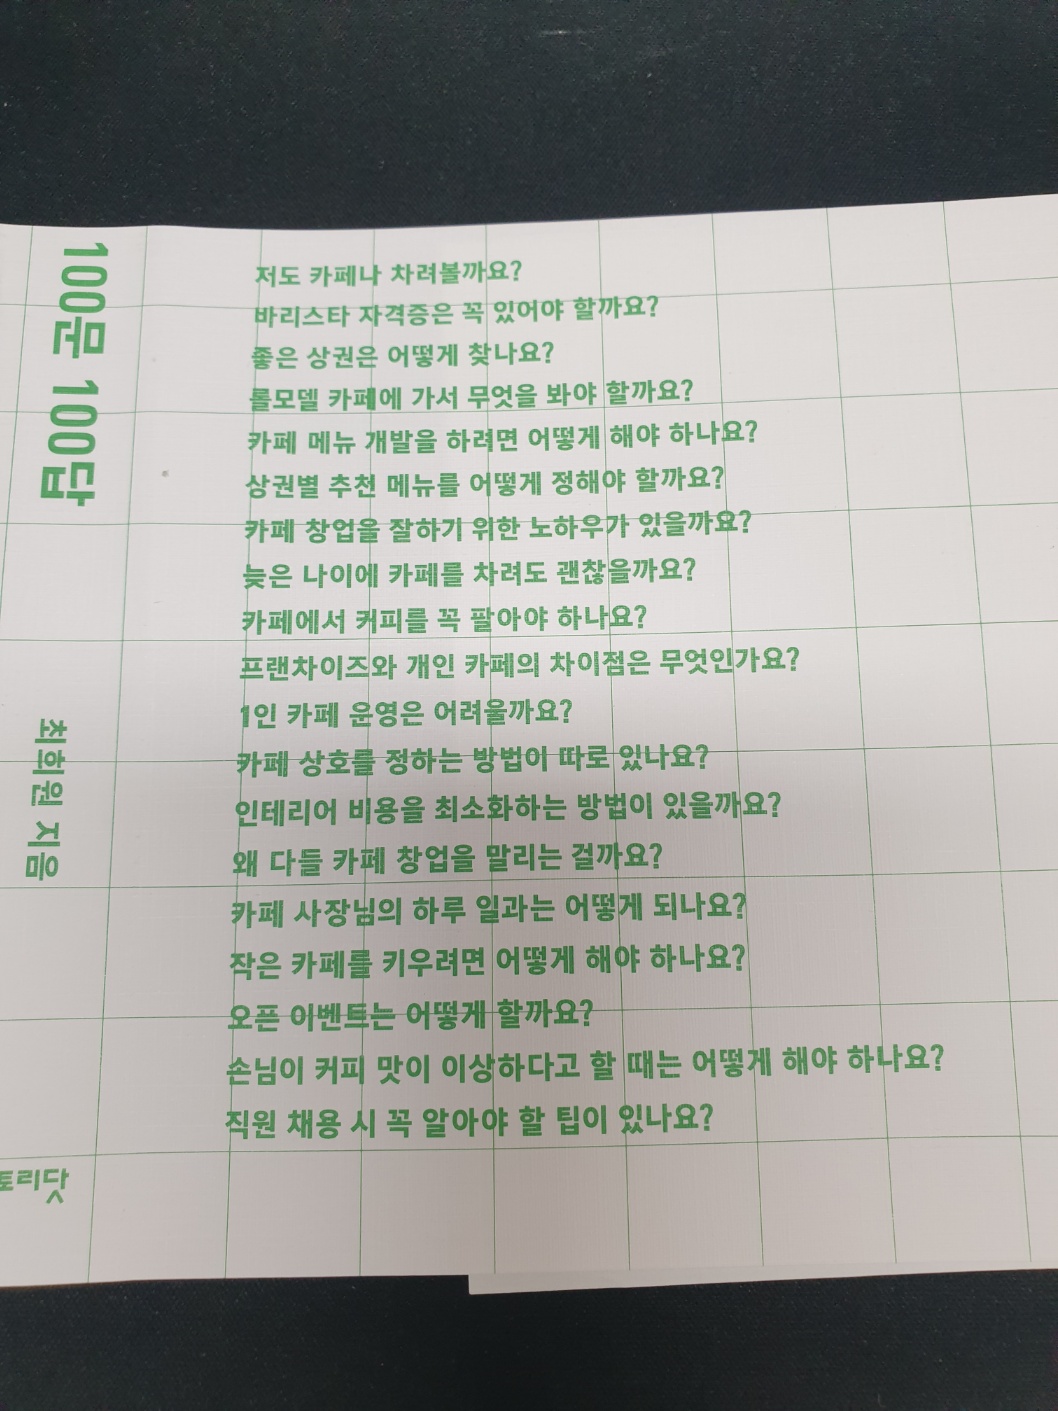 100문 100답
최희원 지음
저도 카페나 차려볼까요?
바리스타 자격증은 꼭 있어야 할까요?
좋은 상권은 어떻게 찾나요?
롤모델 카페에 가서 무엇을 봐야 할까요?
카페 메뉴 개발을 하려면 어떻게 해야 하나요?
상권별 추천 메뉴를 어떻게 정해야 할까요?
카페 창업을 잘하기 위한 노하우가 있을까요?
늦은 나이에 카페를 차려도 괜찮을까요?
카페에서 커피를 꼭 팔아야 하나요?
프랜차이즈와 개인 카페의 차이점은 무엇인가요?
1인 카페 운영은 어려울까요?
카페 상호를 정하는 방법이 따로 있나요?
인테리어 비용을 최소화하는 방법이 있을까요?
왜 다들 카페 창업을 말리는 걸까요?
카페 사장님의 하루 일과는 어떻게 되나요?
작은 카페를 키우려면 어떻게 해야 하나요?
오픈 이벤트는 어떻게 할까요?
손님이 커피 맛이 이상하다고 할 때는 어떻게 해야 하나요?
직원 채용 시 꼭 알아야 할 팁이 있나요?